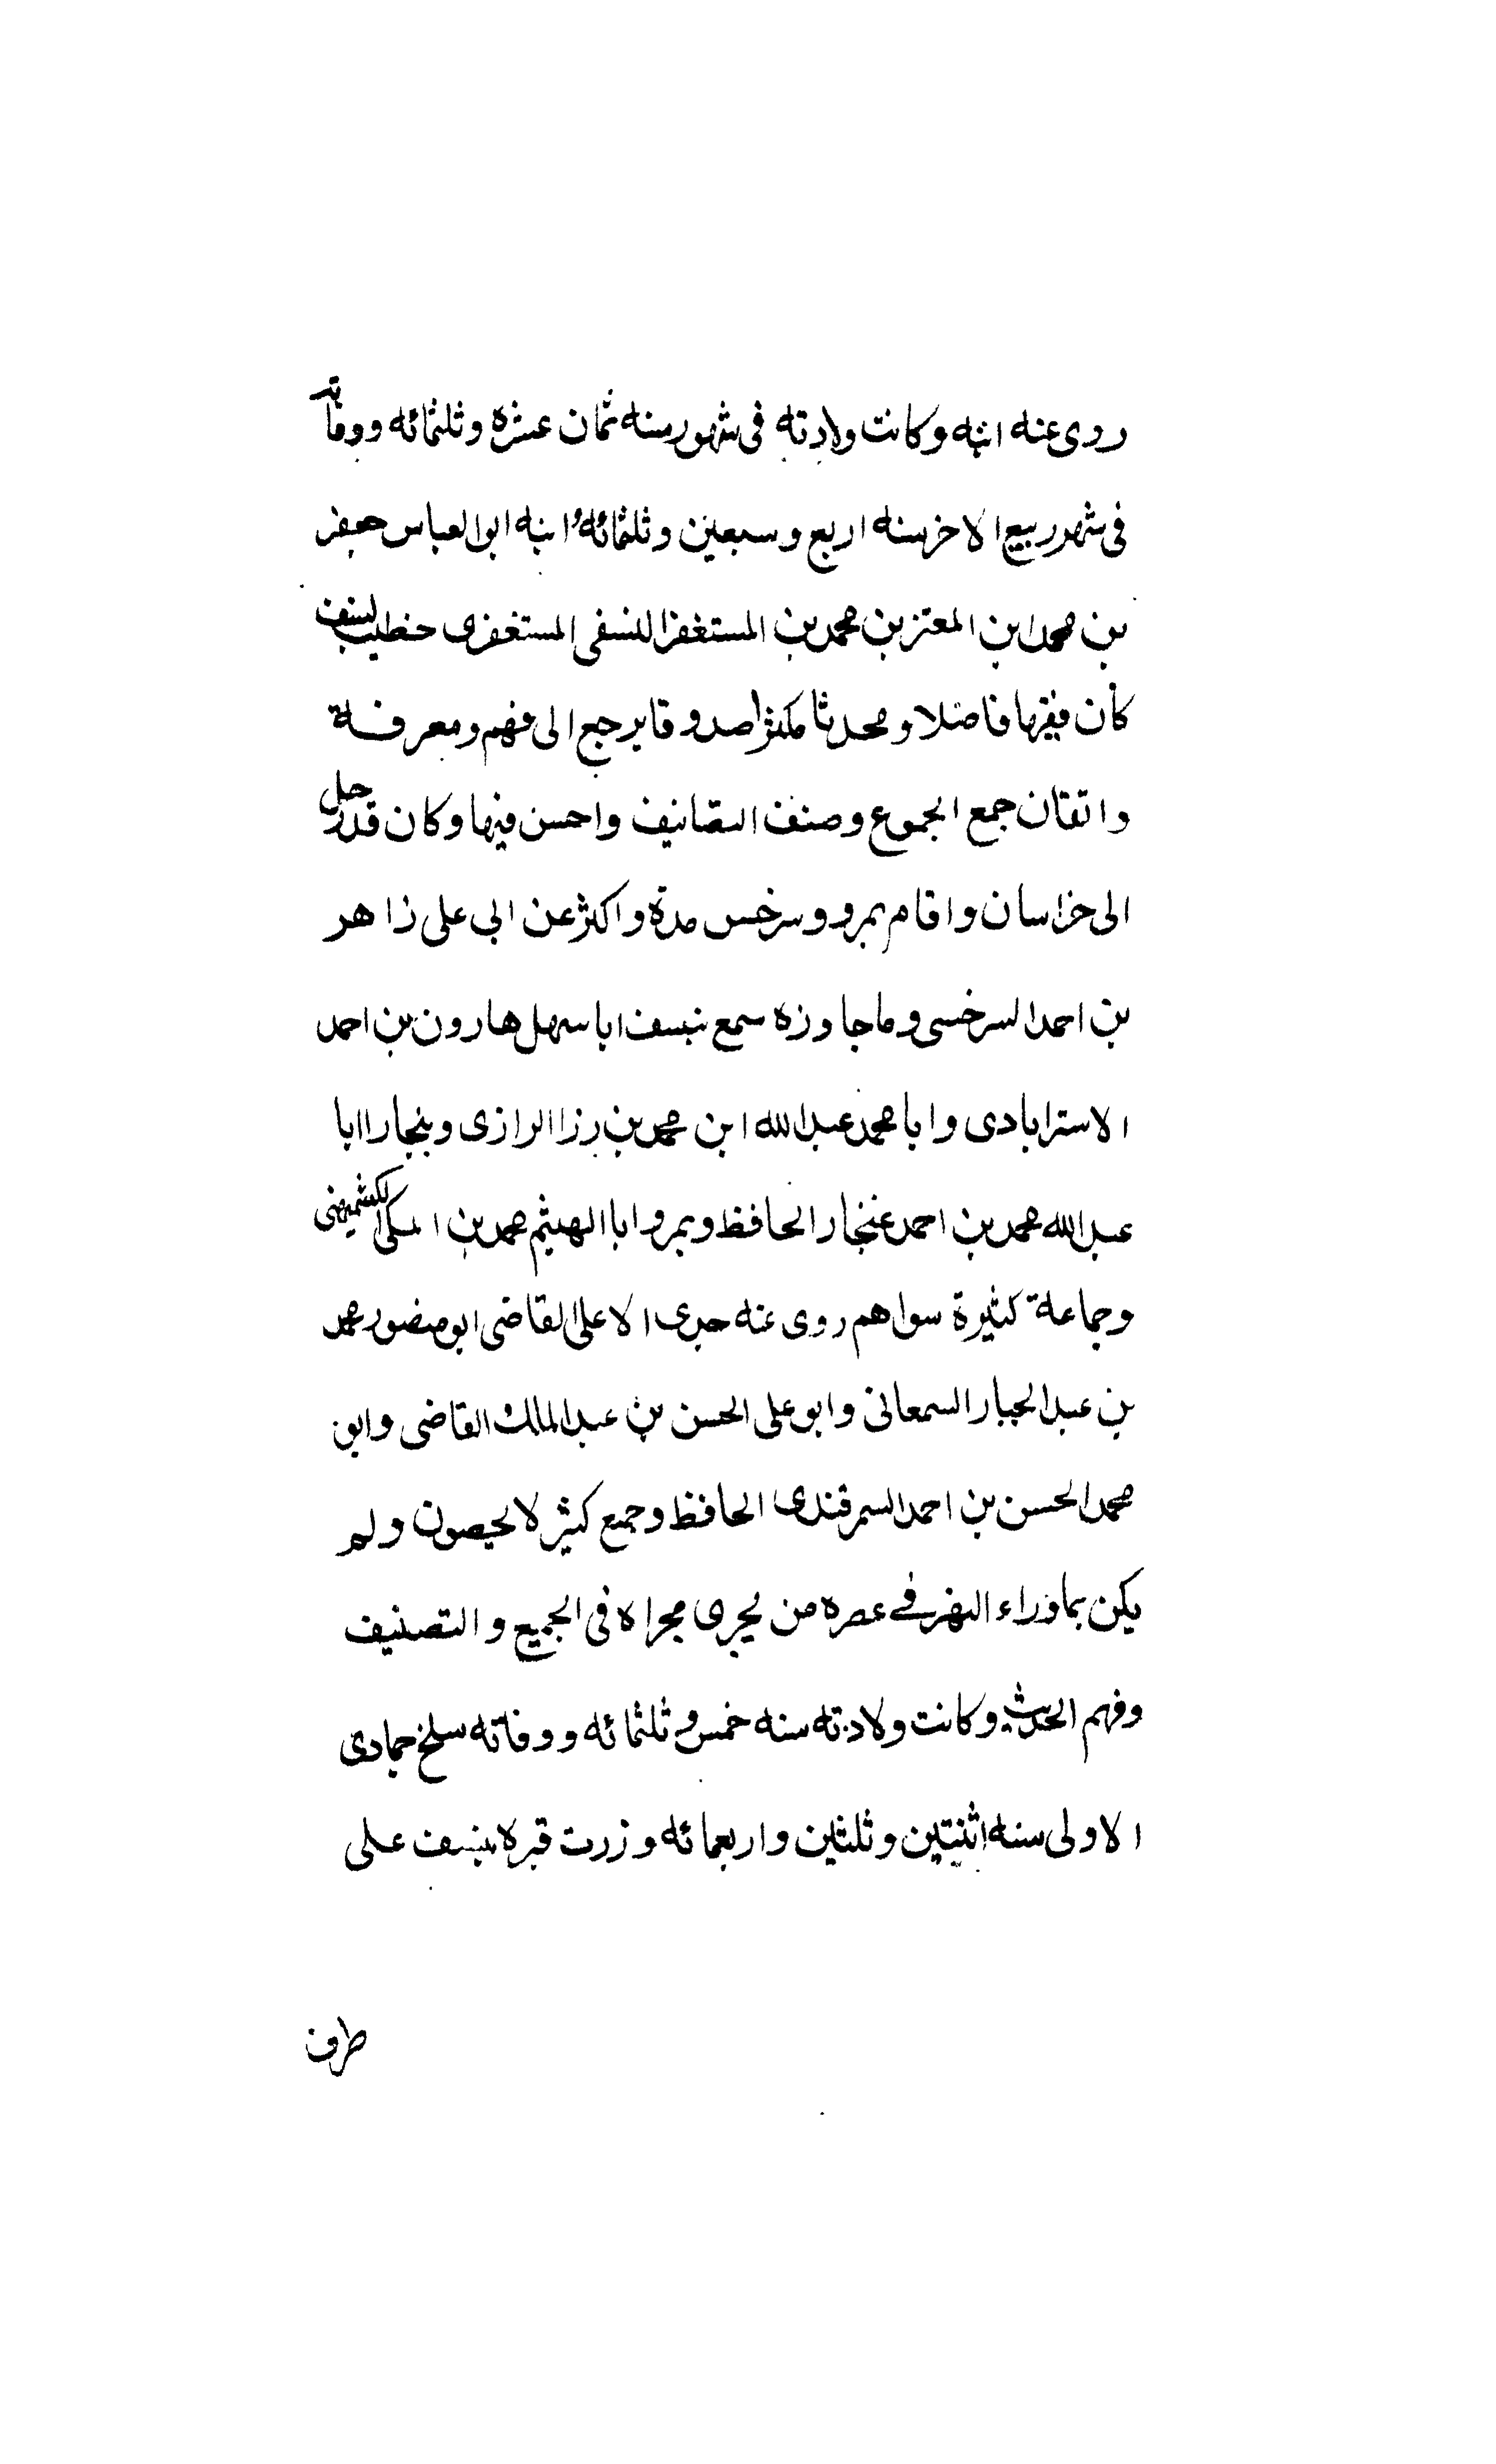 روى عنه ابنه وكانت ولادته فى شهور سنه ثمان عشره وثلثمائه ووفاته
فى شهر ربيع الاخر سنه اربع وسبعين وثلثمائه وابنه ابو العباس جعفر
بن محمد ابن المعتز بن محمد بن المستغفر النسفى المستغفرى خطيب نسف
كان فقيها فاضلا ومحدثا مكثرا صدوقا يرجع الى فهم ومعرفة
واتقان جمع الجموع وصنف التصانيف واحسن فيها وكان قد رحل
الى خراسان واقام بمرو وسرخس مدة واكثر عن ابى على زاهر
بن احمد السرخسى وما جاوزه سمع بنسف ابا سهل هارون بن احمد
الاسترابادى وابا محمد عبد الله ابن محمد بن رزا الرازى وبنجارا ابا
عبد الله محمد بن احمد غنجار الحافظ وبمرو ابا الهيثم محمد بن المكى الكشميهنى
وجماعة كثيرة سواهم روى عنه جدى الاعلى القاضى ابو منصور محمد
بن عبد الجبار السمعانى وابو على الحسن بن عبد الملك القاضى وابو
محمد الحسن بن احمد السمرقندى الحافظ وجمع كثير لا يحصون ولم
يكن بماوراء النهر فى عصره من يجرى مجراه فى الجميع والتصنيف
وفهم الحديث وكانت ولادته سنه خمس وثلثمائه ووفاته سلخ جمادى
الاولى سنه اثنتين وثلثين واربعمائه وزرت قبره بنسف على
طرف